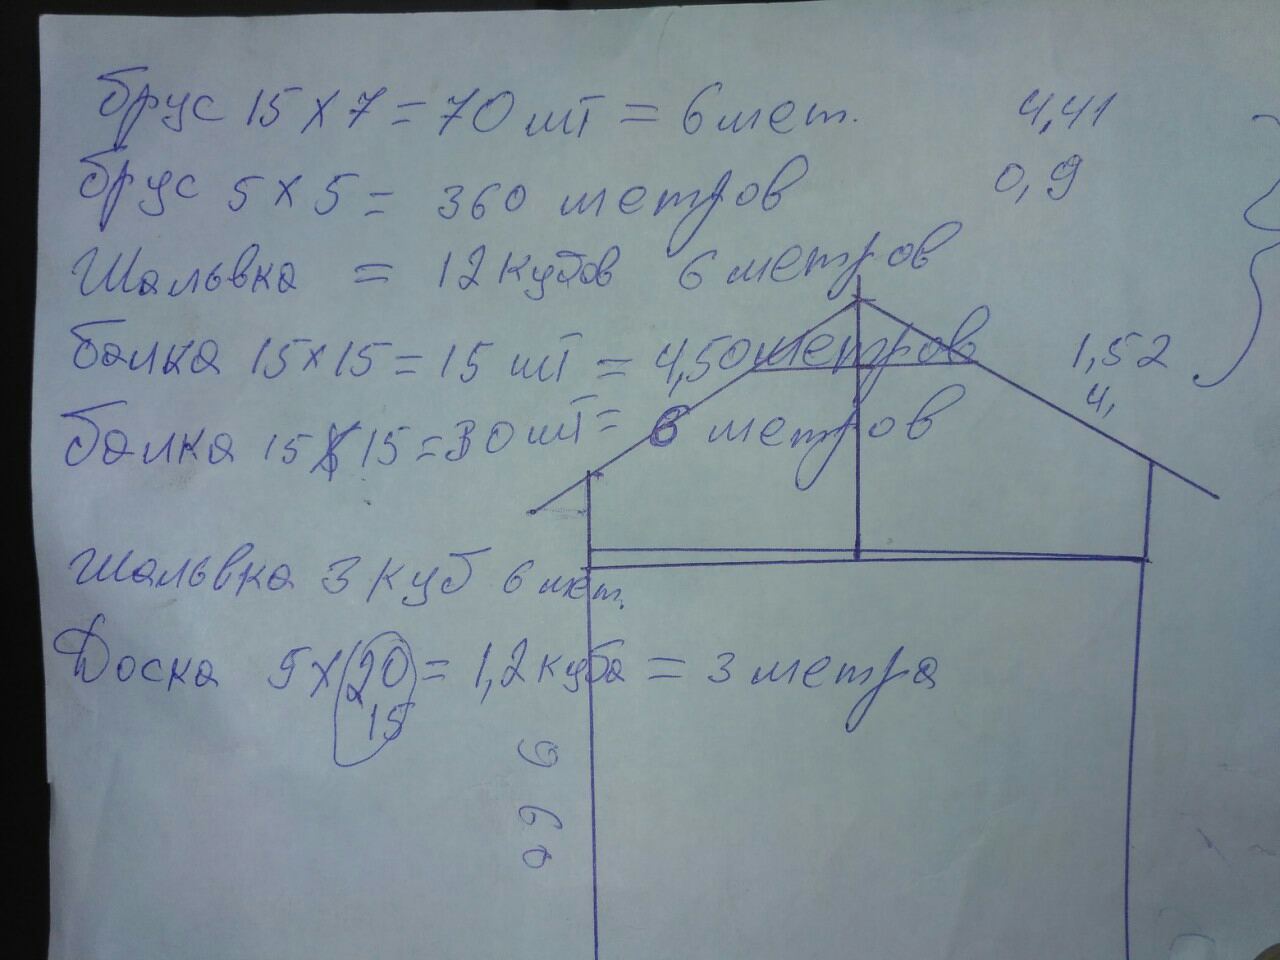 брус 15 х 7 = 70 шт = 6 мет. 4,41
брус 5 х 5 = 360 метров 0,9
Шальвка = 12 кубов 6 метров
балка 15 х 15 = 15 шт = 4,50 метров 1,52
4,
балка 15 х 15 = 30 шт = 6 метров
шальвка 3 куб 6 мет.
Доска 5 х (20 = 1,2 куба = 3 метра
15
9 60